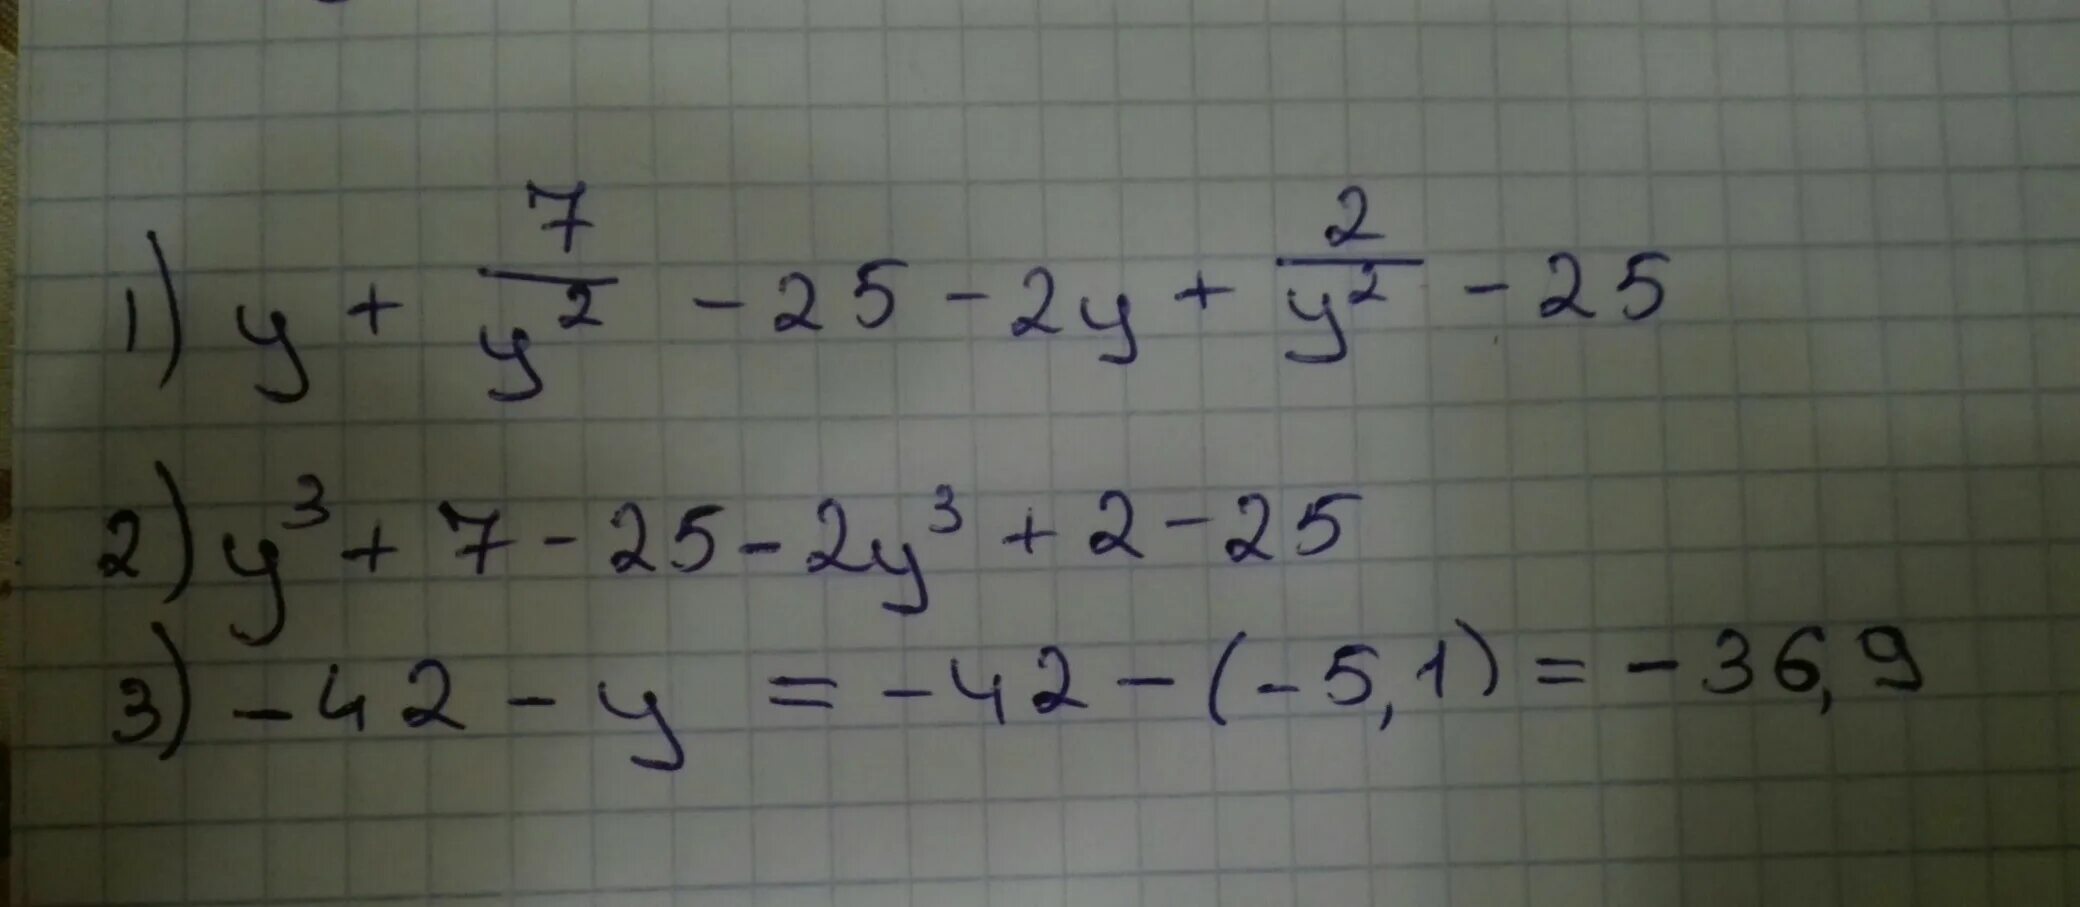 1) y + 7/y² - 25 - 2y + 2/y² - 25
2) y³ + 7 - 25 - 2y³ + 2 - 25
3) - 42 - y = - 42 - (- 5,1) = - 36,9